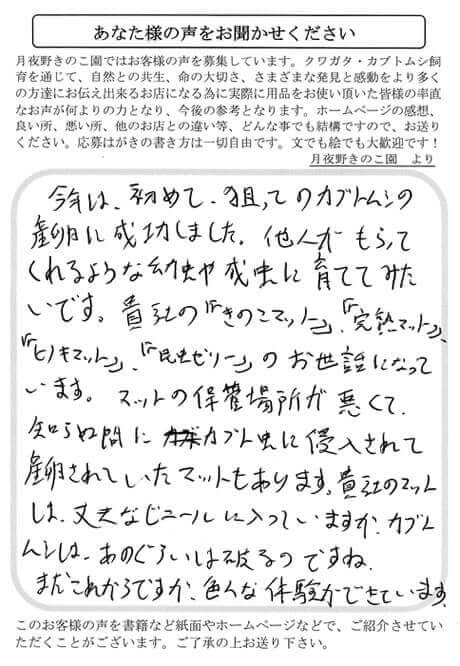 あなた様の声をお聞かせください
月夜野きのこ園ではお客様の声を募集しています。クワガタ・カブトムシ飼
育を通じて、自然との共生、命の大切さ、さまざまな発見と感動をより多く
の方達にお伝え出来るお店になる為に実際に用品をお使い頂いた皆様の率直
なお声が何よりの力となり、今後の参考となります。ホームページの感想、
良い所、悪い所、他のお店との違い等、どんな事でも結構ですので、お送り
ください。応募はがきの書き方は一切自由です。文でも絵でも大歓迎です！
月夜野きのこ園　より
今年は、初めて、狙ってのカブトムシの
産卵に成功しました。他人がもらって
くれるような幼虫や成虫に育ててみた
いです。貴社の「きのこマット」、「完熟マット」、
「ヒノキマット」、「昆虫ゼリー」のお世話になって
います。マットの保管場所が悪くて、
知らぬ間にカブト虫に侵入されて
産卵されていたマットもあります。貴社のマット
は、丈夫なビニールに入っていますが、カブト
ムシは、あのぐらいは破るのですね。
まだこれからですが、色々な体験ができています。
このお客様の声を書籍など紙面やホームページなどで、ご紹介させてい
ただくことがございます。ご了承の上お送り下さい。